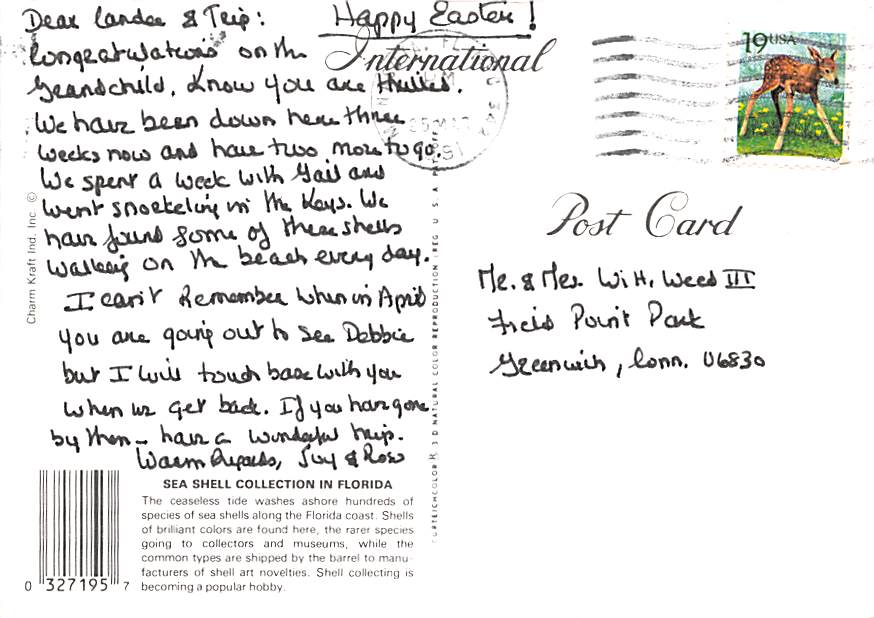 Dear Landee & Trip: Happy Easter!
Congratulations on the
Grandchild. Know you are thrilled.
We have been down here three
weeks now and have two more to go.
We spent a week with Gail and
went snorkeling in the Keys. We
have found some of these shells
walking on the beach every day.
I can't remember when in April
you are going out to see Debbie
but I will touch base with you
when we get back. If you have gone
by then - have a wonderful trip.
Warm Regards, & Ross
SEA SHELL COLLECTION IN FLORIDA
The ceaseless tide washes ashore hundreds of
species of sea shells along the Florida coast. Shells
of brilliant colors are found here, the rarer species
going to collectors and museums, while the
common types are shipped by the barrel to manu-
facturers of shell art novelties. Shell collecting is
becoming a popular hobby.
0 327195 7
Charm Kraft Ind. Inc. ©
CURTEICHCOLOR® 3 D NATURAL COLOR REPRODUCTION (REG. U. S. A.
International
Post Card
19 USA
FL
PM
25 MAR
1991
Mr. & Mrs. Wm H. Weed III
Point Park
Greenwich, Conn. 06830